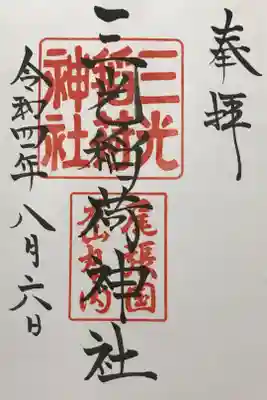 奉拝
三光稲荷神社
令和四年八月六日
三光
稲荷
神社
尾張国
犬山丸内